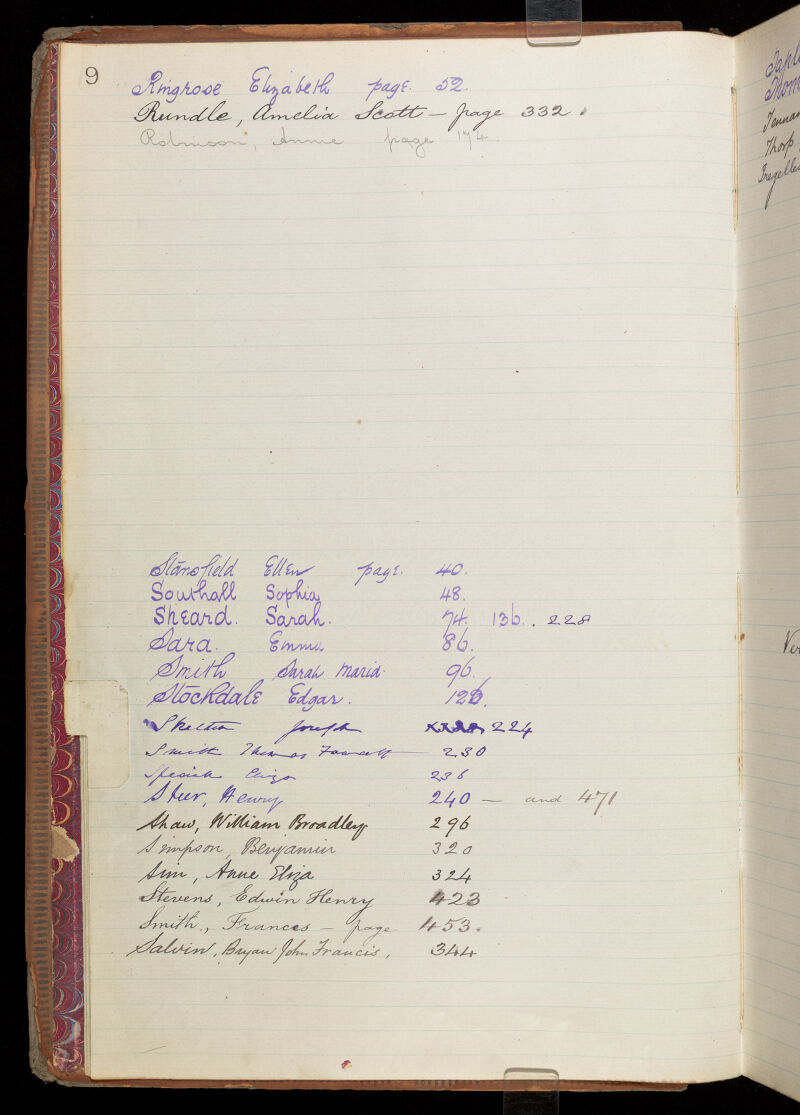 9
Ringrose Elizabeth page. 52.
Rundle, Amelia Scott – page 332.
Robinson, Annie page 174.
Stansfield Ellen page. 40.
Southall Sophia 48.
Sheard. Sarah. 74. 136. . 228
Sara. Emma 86.
Smith Sarah Maria. 96.
Stockdale Edgar. 126.
Skelton Joseph 224
Smith Thomas Fawcett 230
236
Steer, Henry 240 — and 471
Shaw, William Broadley 296
Simpson, Benjamin 320
Sim, Anne Eliza 324
Stevens, Edwin Henry 423
Smith, Frances – page 453.
Salvin, Bryan John Francis, 344
Thorp